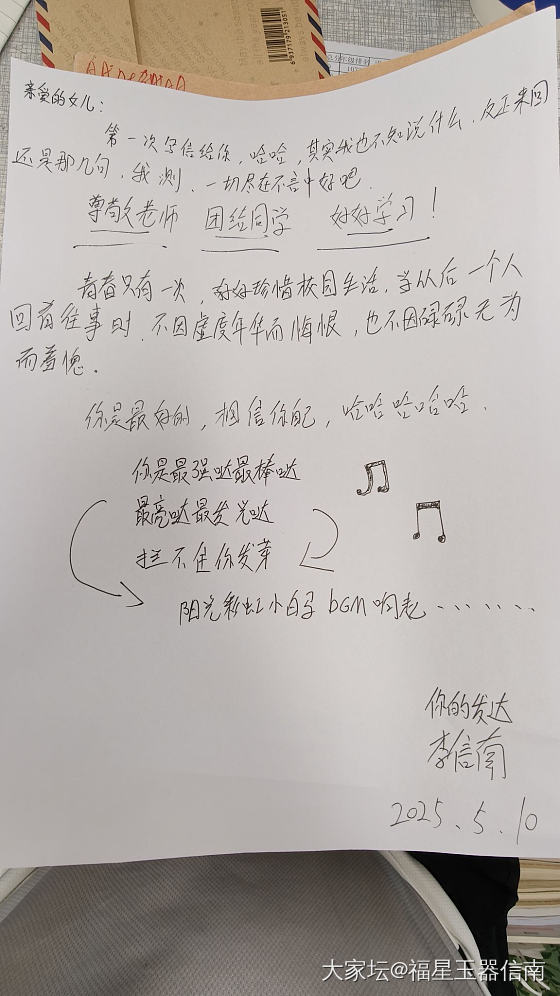 亲爱的女儿：
第一次写信给你，哈哈，其实我也不知说什么，反正来回
还是那几句，我测，一切尽在不言中好吧.
尊敬老师 团结同学 好好学习！
青春只有一次，好好珍惜校园生活，当从后一个人
回首往事时，不因虚度年华而悔恨，也不因碌碌无为
而羞愧.
你是最好的，相信你自己，哈哈哈哈哈.
你是最强哒最棒哒
最亮哒最发光哒
拦不住你发芽
阳光彩虹小白马 bGM 响起.......
你的发达
李信南
2025.5.10
6937179213051
大家坛@福星玉器信南